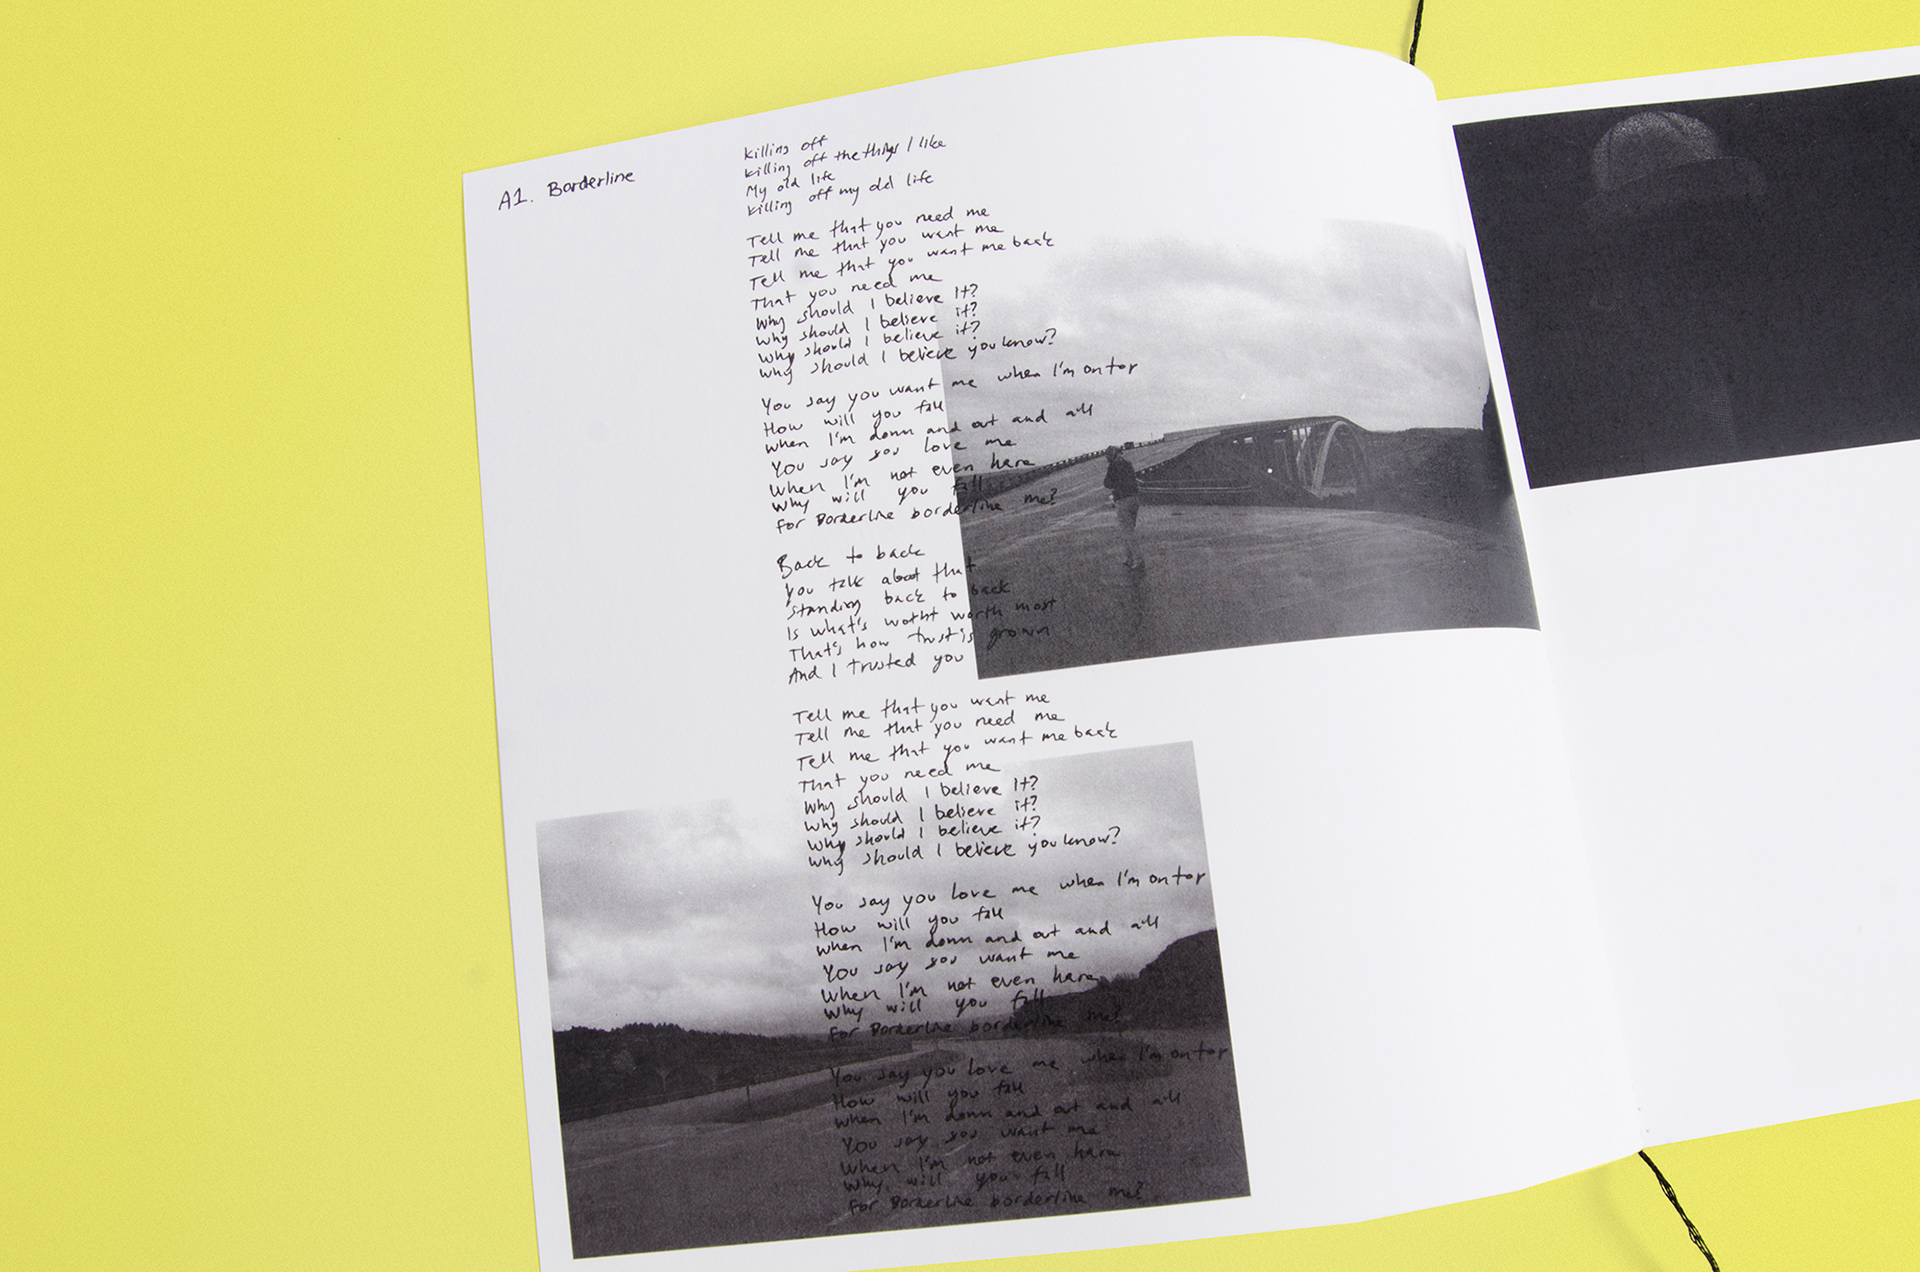 A1. Borderline
Killing off
Killing off the things I like
My old life
Killing off my old life
Tell me that you need me
Tell me that you want me
Tell me that you want me back
That you need me
Why should I believe It?
Why should I believe it?
Why should I believe it?
Why should I believe you know?
You say you want me when I'm on top
How will you fall
When I'm down and out and all
You say you love me
When I'm not even here
Why will you fall
For Borderline borderline me?
Back to back
You talk about that
Standing back to back
Is what's wotht worth most
That's how trust is grown
And I trusted you
Tell me that you want me
Tell me that you need me
Tell me that you want me back
That you need me
Why should I believe It?
Why should I believe it?
Why should I believe it?
Why should I believe you know?
You say you love me when I'm on top
How will you fall
When I'm down and out and all
You say you want me
When I'm not even here
Why will you fall
For Borderline borderline me?
You say you love me when I'm on top
How will you fall
When I'm down and out and all
You say you want me
When I'm not even here
Why will you fall
For Borderline borderline me?